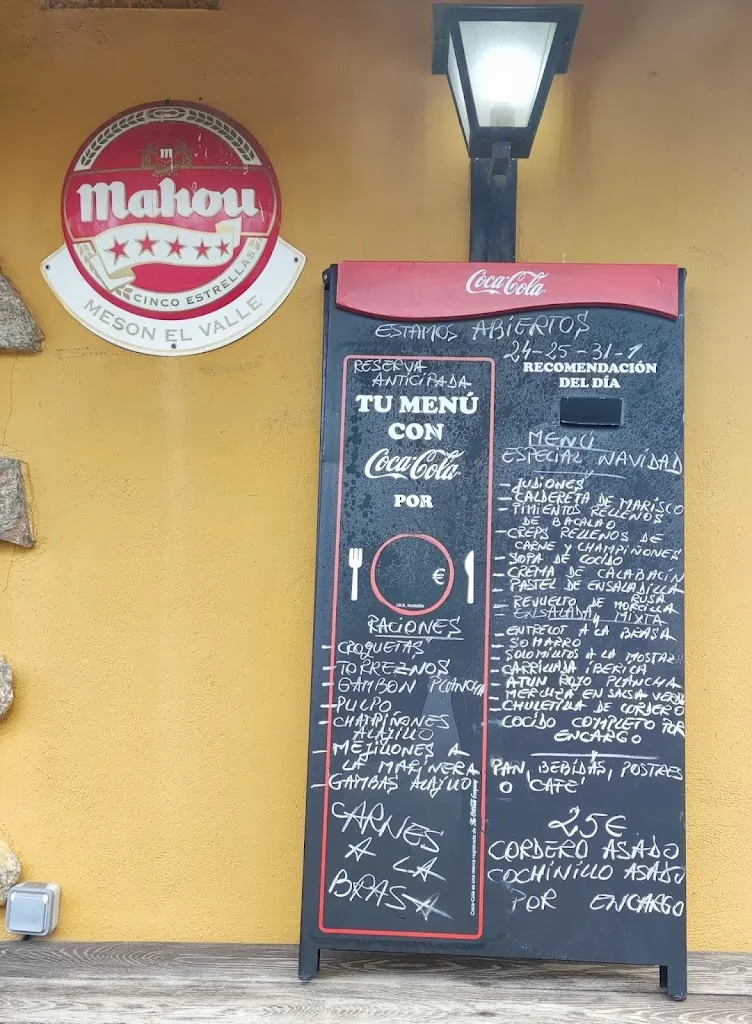 m
Mahou
CINCO ESTRELLAS
MESON EL VALLE
Coca-Cola
ESTAMOS ABIERTOS
24-25-31-1
RESERVA
ANTICIPADA
TU MENÚ
CON
Coca-Cola
POR
€
I.V.A. Incluido
RACIONES
- CROQUETAS
- TORREZNOS
- GAMBON PLANCHA
- PULPO
- CHAMPIÑONES
ALAJILLO
- MEJILLONES A
LA MARINERA
- GAMBAS ALAJILLO
CARNES
A LA
BRASA
Coca-Cola es una marca registrada de The Coca-Cola Company
RECOMENDACIÓN
DEL DÍA
MENÚ
ESPECIAL NAVIDAD
- JUDIONES
- CALDERETA DE MARISCO
- PIMIENTOS RELLENOS
DE BACALAO
- CREPS RELLENOS DE
CARNE Y CHAMPIÑONES
- SOPA DE COCIDO
- CREMA DE CALABACIN
- PASTEL DE ENSALADILLA
RUSA
- REVUELTO DE MORCILLA
- ENSALADA MIXTA
- ENTRECOT A LA BRASA
- SOMARRO
- SOLOMILLOS A LA MOSTAZ
- CARRILLADA IBERICA
- ATUN ROJO PLANCHA
- MERLUZA EN SALSA VERDE
- CHULETILLA DE CORDERO
COCIDO COMPLETO POR
ENCARGO
PAN, BEBIDAS, POSTRES
O CAFE
25€
CORDERO ASADO
COCHINILLO ASADO
POR ENCARGO